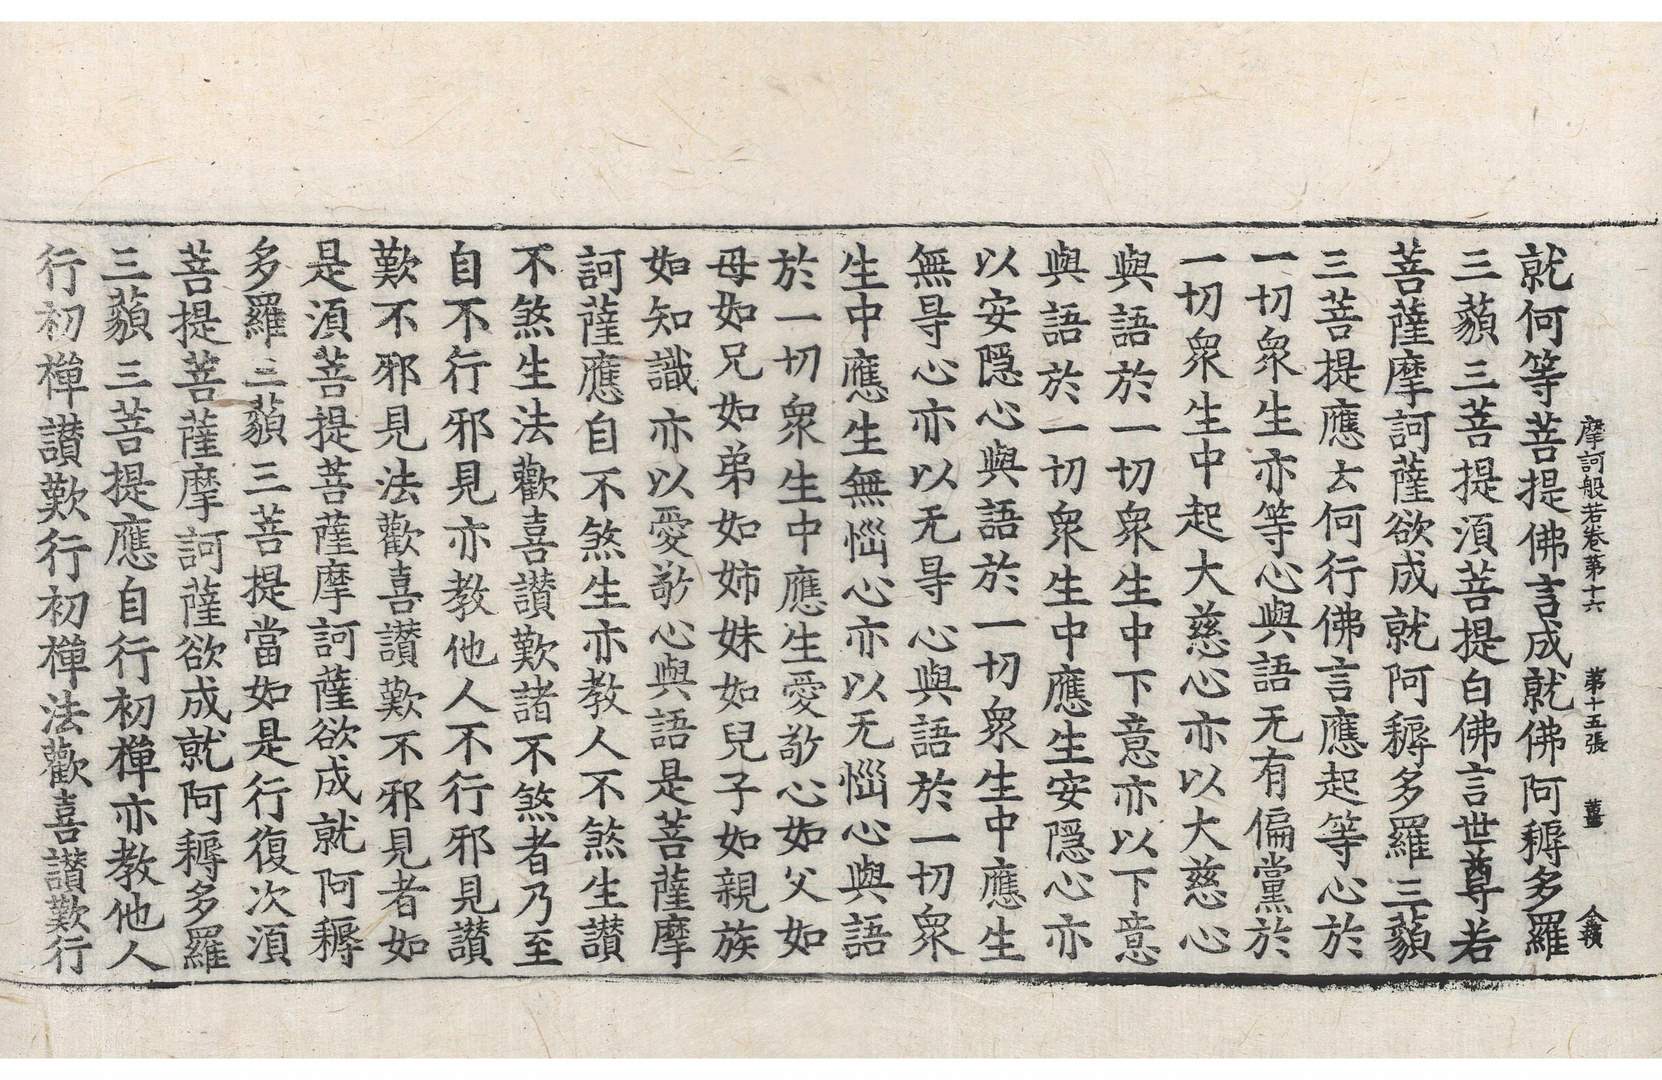 摩訶般若卷第十六 第十五張 薑
就何等菩提佛言成就佛阿耨多羅
三藐三菩提須菩提白佛言世尊若
菩薩摩訶薩欲成就阿耨多羅三藐
三菩提應云何行佛言應起等心於
一切衆生亦等心與語无有偏黨於
一切衆生中起大慈心亦以大慈心
與語於一切衆生中下意亦以下意
與語於一切衆生中應生安隱心亦
以安隱心與語於一切衆生中應生
無㝵心亦以无㝵心與語於一切衆
生中應生無惱心亦以无惱心與語
於一切衆生中應生愛敬心如父如
母如兄如弟如姊妹如兒子如親族
如知識亦以愛敬心與語是菩薩摩
訶薩應自不煞生亦教人不煞生讃
不煞生法歡喜讃歎諸不煞者乃至
自不行邪見亦教他人不行邪見讃
歎不邪見法歡喜讃歎不邪見者如
是須菩提菩薩摩訶薩欲成就阿耨
多羅三藐三菩提當如是行復次須
菩提菩薩摩訶薩欲成就阿耨多羅
三藐三菩提應自行初禪亦教他人
行初禪讃歎行初禪法歡喜讃歎行